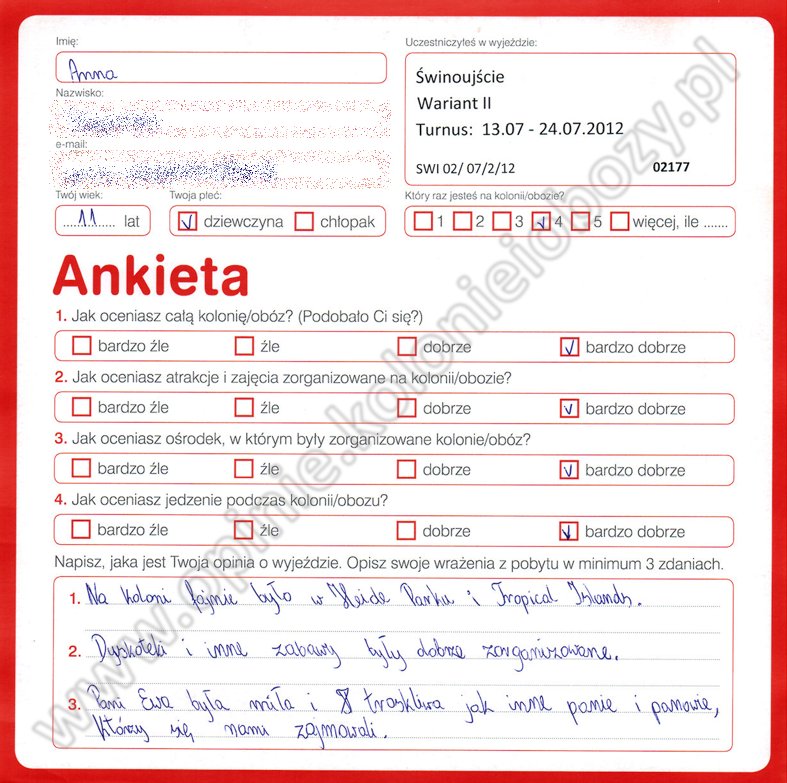 Imię:
Anna
Nazwisko:
e-mail:
Twój wiek:
11 lat
Twoja płeć:
dziewczyna chłopak
Uczestniczyłeś w wyjeździe:
Świnoujście
Wariant II
Turnus: 13.07 - 24.07.2012
SWI 02/ 07/2/12 02177
Który raz jesteś na kolonii/obozie?
1 2 3 4 5 więcej, ile .......
Ankieta
1. Jak oceniasz całą kolonię/obóz? (Podobało Ci się?)
bardzo źle źle dobrze bardzo dobrze
2. Jak oceniasz atrakcje i zajęcia zorganizowane na kolonii/obozie?
bardzo źle źle dobrze bardzo dobrze
3. Jak oceniasz ośrodek, w którym były zorganizowane kolonie/obóz?
bardzo źle źle dobrze bardzo dobrze
4. Jak oceniasz jedzenie podczas kolonii/obozu?
bardzo źle źle dobrze bardzo dobrze
Napisz, jaka jest Twoja opinia o wyjeździe. Opisz swoje wrażenia z pobytu w minimum 3 zdaniach.
1. Na koloni fajnie było w Heide Parku i Tropical Islands.
2. Dyskoteki i inne zabawy były dobrze zorganizowane.
3. Pani Ewa była miła i troskliwa jak inne panie i panowie,
którzy się nami zajmowali.
www.opinie.kolonieiobozy.pl